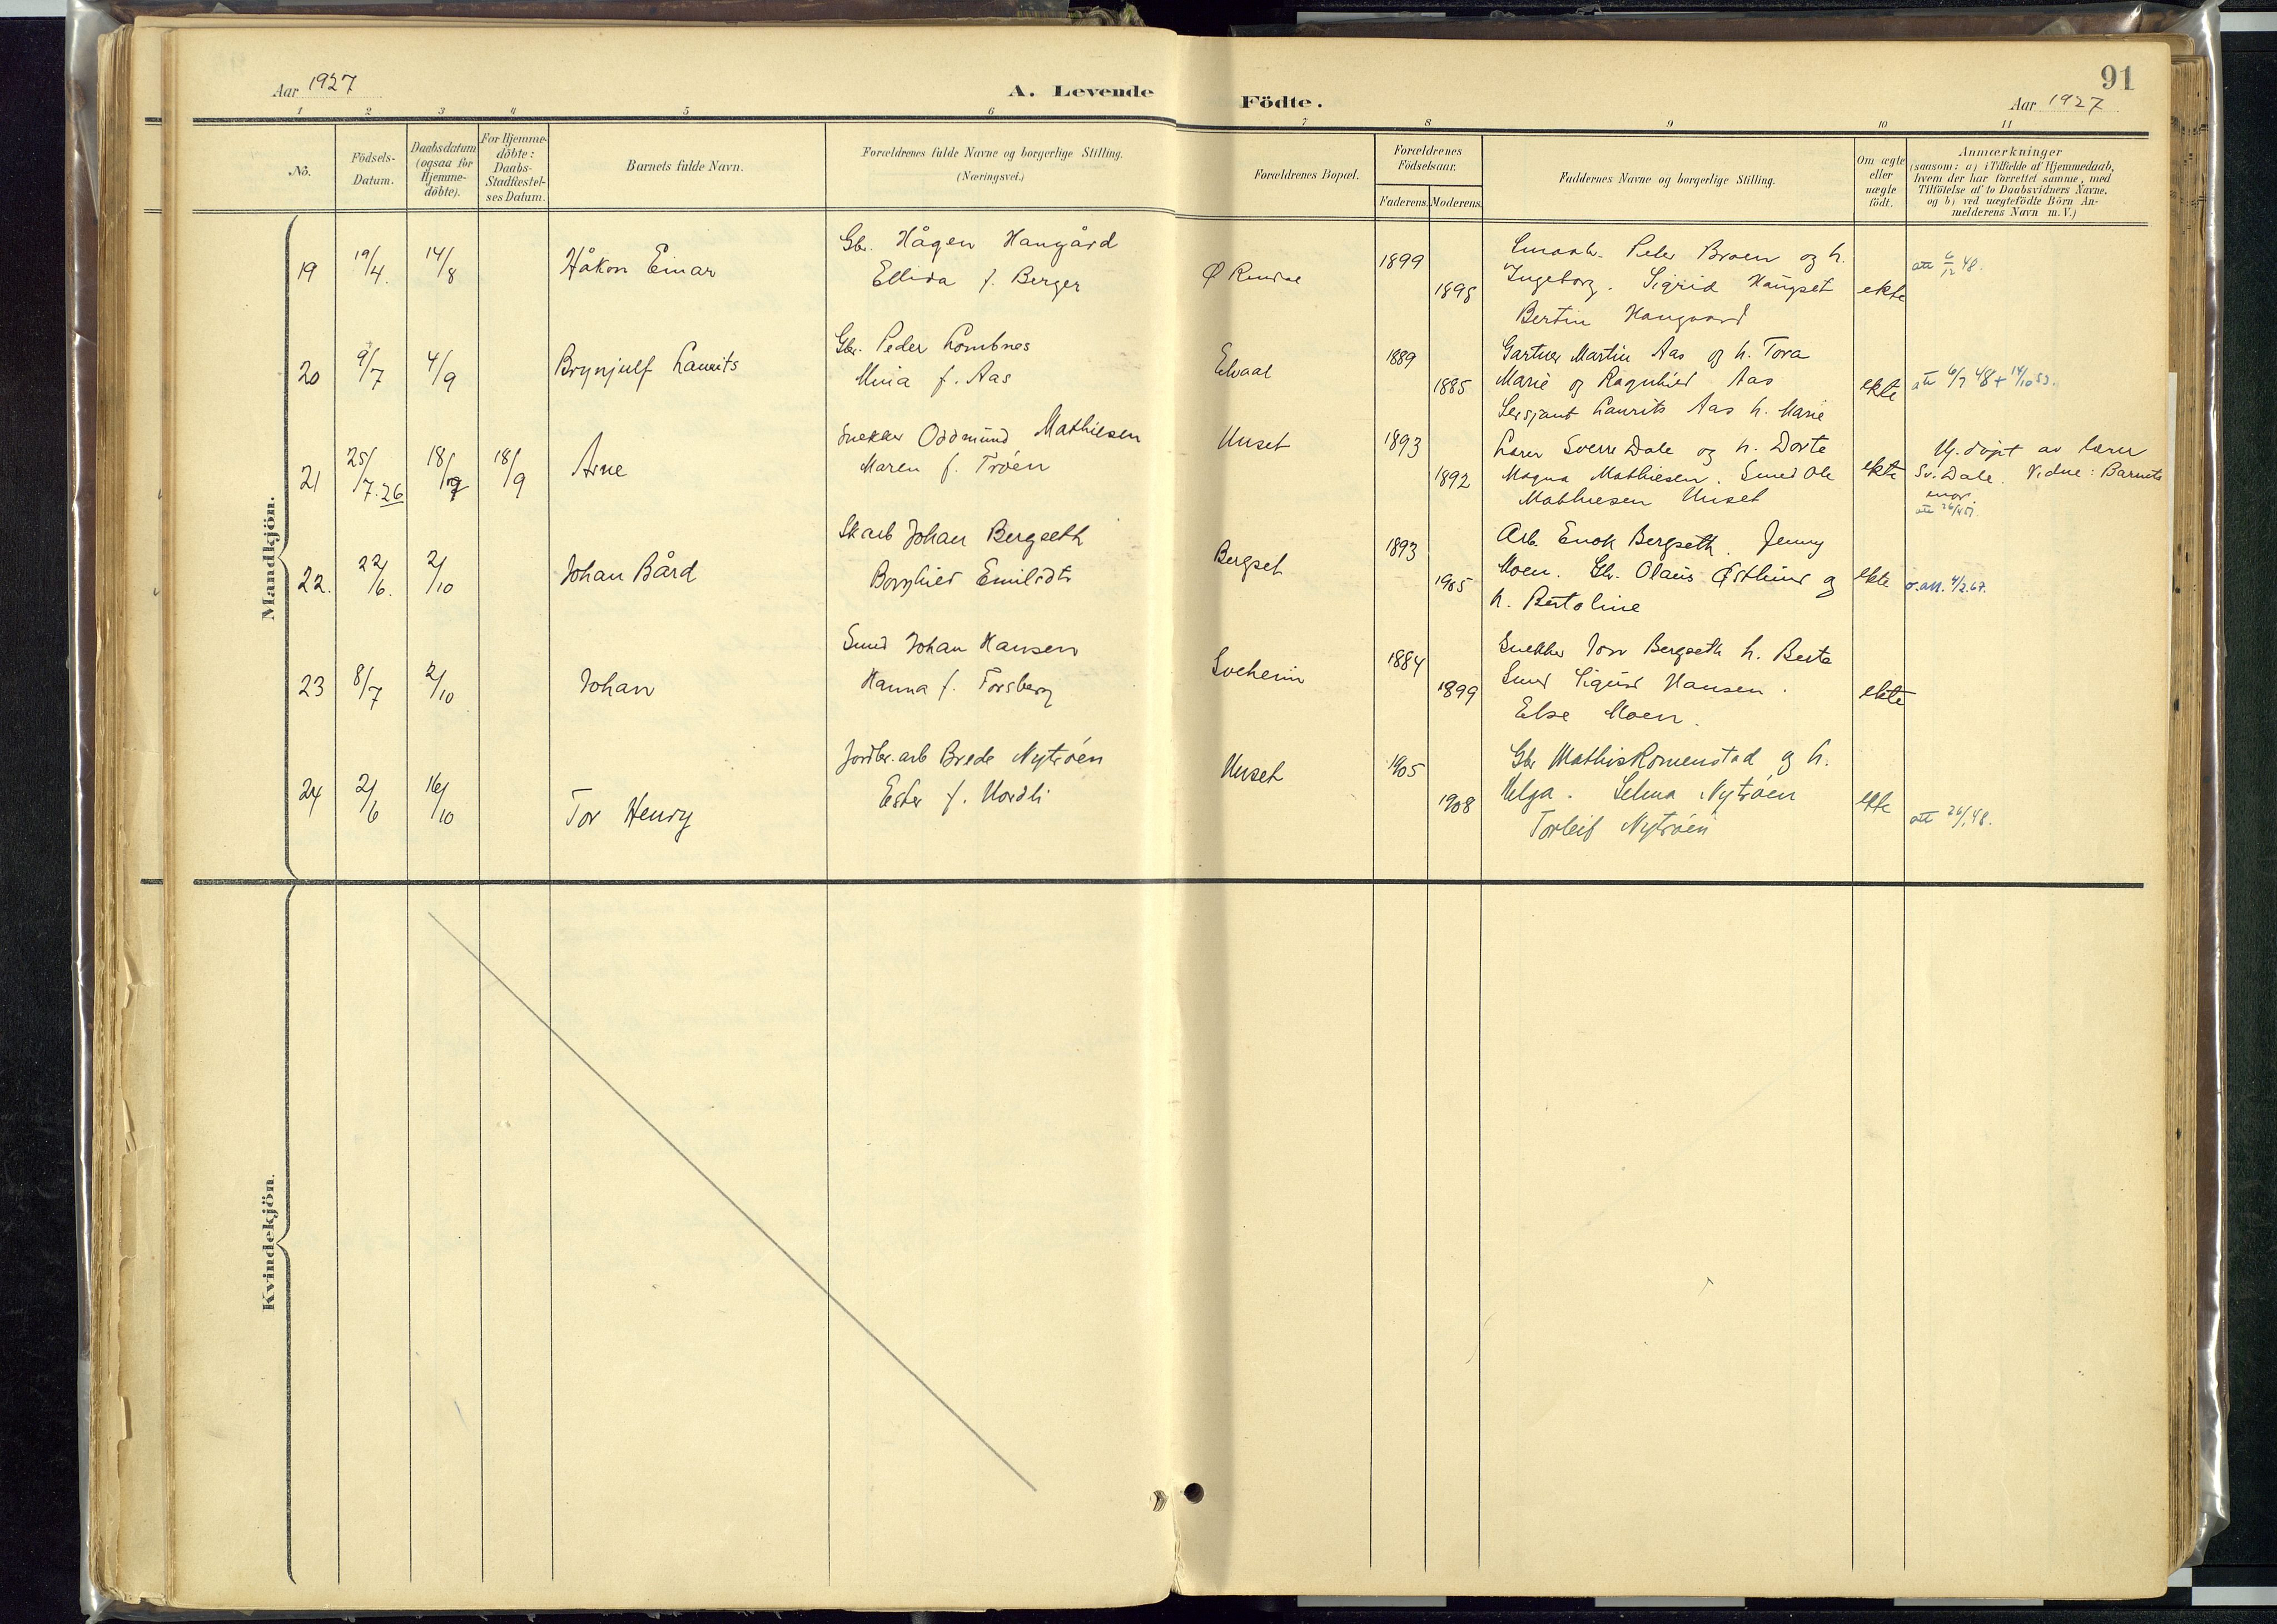 91
Aar 1927
A. Levende Födte.
Aar 1927
1 2 3 4 5 6 7 8 9 10 11
No.
Födsels-Datum.
Daabsdatum (ogsaa for Hjemme-döbte).
For Hjemme-döbte: Daabs-Stadfæstel-ses Datum.
Barnets fulde Navn.
Forældrenes fulde Navne og borgerlige Stilling.
(Næringsvei.)
Forældrenes Bopæl.
Forældrenes Födselsaar.
Faderens. Moderens.
Faddernes Navne og borgerlige Stilling.
Om ægte eller uægte födt.
Anmærkninger
(saasom: a) i Tilfælde af Hjemmedaab,
hvem der har forrettet samme, med
Tilföielse af to Daabsvidners Navne,
og b) ved uægtefödte Börn An-
melderens Navn m. V.)
Mandkjön.
19 19/4. 14/8 Håkon Einar
Gbr. Hågen Haugård
Ellida f. Berger
Ø Rendal
1899
1898
Smaabr. Peder Broen og h.
Ingeborg. Sigrid Haugset
Bertin Haugaard
ekte
att 6/12 48.
20 9/7 4/9 Brynjulf Laurits
Gbr. Peder Lombnes
Mina f. Aas
Elvaal
1889
1885
Gartner Martin Aas og h. Tora
Marie og Ragnhild Aas
Sersjant Laurits Aas h. Marie
ekte
att 6/7 48 + 14/10 53.
21 25/7.26 18/9 18/9 Arne
Snekker Oddmund Mathiesen
Maren f. Trøen
Unset
1893
1892
Lærer Sverre Dale og h. Dorte
Magna Mathiesen. Smed Ole
Mathiesen Unset
ekte
Hj. døpt av lærer
Sv. Dale. Vidne: Barnets
mor.
att 26/4 51.
22. 22/6. 2/10 Johan Bård
Sk arb Johan Bergseth
Borghild Emilsdtr
Bergset
1893
1905
Arb. Enok Bergseth. Jenny
Moen. Gbr. Olaus Østlund og
h. Bertoline
ekte
o. att. 4/2.67.
23 8/7 2/10 Johan
Smed Johan Hansen
Hanna f. Torsberg
Solheim
1884
1899
Snekker Jon Bergseth h. Berte
Smed Sigurd Hansen.
Else Moen.
ekte
24 2/6 16/10 Tor Henry
Jordbr. arb Brede Nytrøen
Ester f. Nordli
Unset
1905
1908
Gbr Mathis Romenstad og h.
Helga. Selma Nytrøen
Torleif Nytrøen
ekte
att 26/1 48.
Kvindekjön.